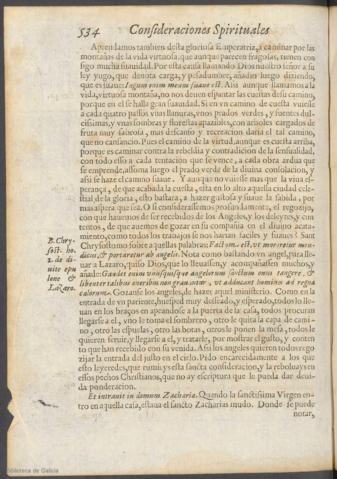 534 Consideraciones Spirituales
Aprendamos tambien desta gloriosa Emperatriz, a caminar por las
montañas de la vida virtuosa, que aunque parecen fragosas, tienen con
sigo mucha suauidad. Por esta causa llamando Dios nuestro señor a su
ley yugo, que denota carga, y pesadumbre, añade luego diziendo,
que es suaue: Iugum enim meum suaue est. Assi aunque llamamos a la
vida virtuosa montaña, no nos deuen espantar las cuestas deste camino,
porque en el se halla gran suauidad. Si en vn camino de cuesta vuiesse
a cada quatro passos vnas llanuras, vnos prados verdes, y fuentes dul-
cissimas, y vnas sombras y florestas apazibles, con arboles cargados de
fruta muy sabrosa, mas descanso y recreacion daria el tal camino,
que no cansancio. Pues el camino de la virtud, aunque es cuesta arriba,
porque es caminar contra la rebeldia y contradicion de la sensualidad,
con todo esso a cada tentacion que se vence, a cada obra ardua que
se emprende, assoma luego el prado verde de la diuina consolacion, y
assi se haze el camino suaue. Y aunque no vuiesse mas que la viua es-
perança, de que acabada la cuesta, esta en lo alto aquella ciudad celes-
tial de la gloria, esto bastara, a hazer gustosa y suaue la subida, por
mas aspera que sea. O si considerassemos profundamente, el regozijo,
con que hauemos de ser recebidos de los Angeles, y los deleytes, y con
tentos, de que auemos de gozar en su compañia en el diuino acata-
miento, como todos los trabajos se nos harian faciles y suaues! Sant
Chrysostomo sobre aquellas palabras: Factum est, vt moreretur men-
dicus, & portaretur ab angelis. Nota como bastando vn angel, para lle-
uar a Lazaro, quiso Dios, que lo lleuassen, y acompañassen muchos, y
añade: Gaudet enim vnusquisque angelorum sanctum onus tangere, &
libenter talibus oneribus non grauantur, vt adducant homines ad regna
cælorum. Gozanse los angeles, de hazer aquel ministerio. Como en la
entrada de vn pariente, huesped muy desseado, y esperado, todos lo lle-
uan en los braços en apeandose a la puerta de la casa, todos procuran
llegarse a el, vno le toma el sombrero, otro le quita la capa de cami-
no, otro las espuelas, otro las botas, otros le ponen la mesa, todos le
quieren seruir, y llegarse a el, y tratarle, por mostrar el gusto, y conten
to que han recebido con su venida. Assi los angeles quieren todos rego
zijar la entrada del justo en el cielo. Pido encarecidamente a los que
esto leyeredes, que rumieys esta sancta consideracion, y la reboluays en
essos pechos Christianos, que no ay escriptura que le pueda dar deui-
da ponderacion.
Et intrauit in domum Zachariæ. Quando la sanctissima Virgen en-
tro en aquella casa, estaua el sancto Zacharias mudo. Donde se puede
notar,
B. Chry-
sost. ho.
2. de di
uite epu
lone &
Lazaro.
Biblioteca de Galicia